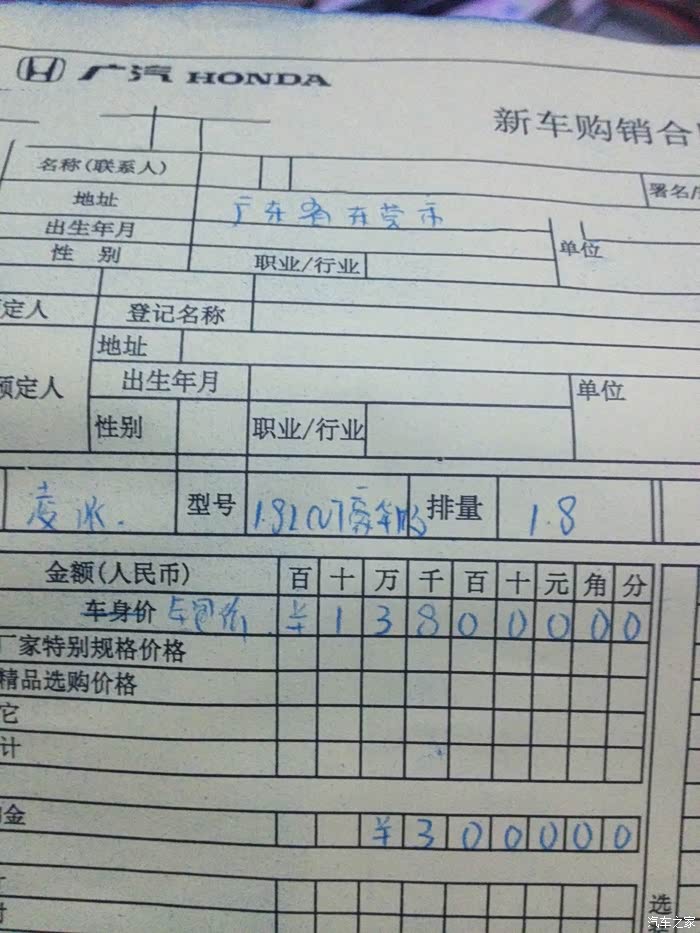 广汽 HONDA
新车购销合
名称(联系人)
署名/
地址 广东省东莞市
出生年月 单位
性 别 职业/行业
定人 登记名称
地址
预定人 出生年月 单位
性别 职业/行业
凌派. 型号 排量 1.8
金额(人民币) 百 十 万 千 百 十 元 角 分
车身价 ¥ 1 3 8 0 0 0 0 0
厂家特别规格价格
精品选购价格
它
计
金 ¥ 3 0 0 0 0 0
选
汽车之家